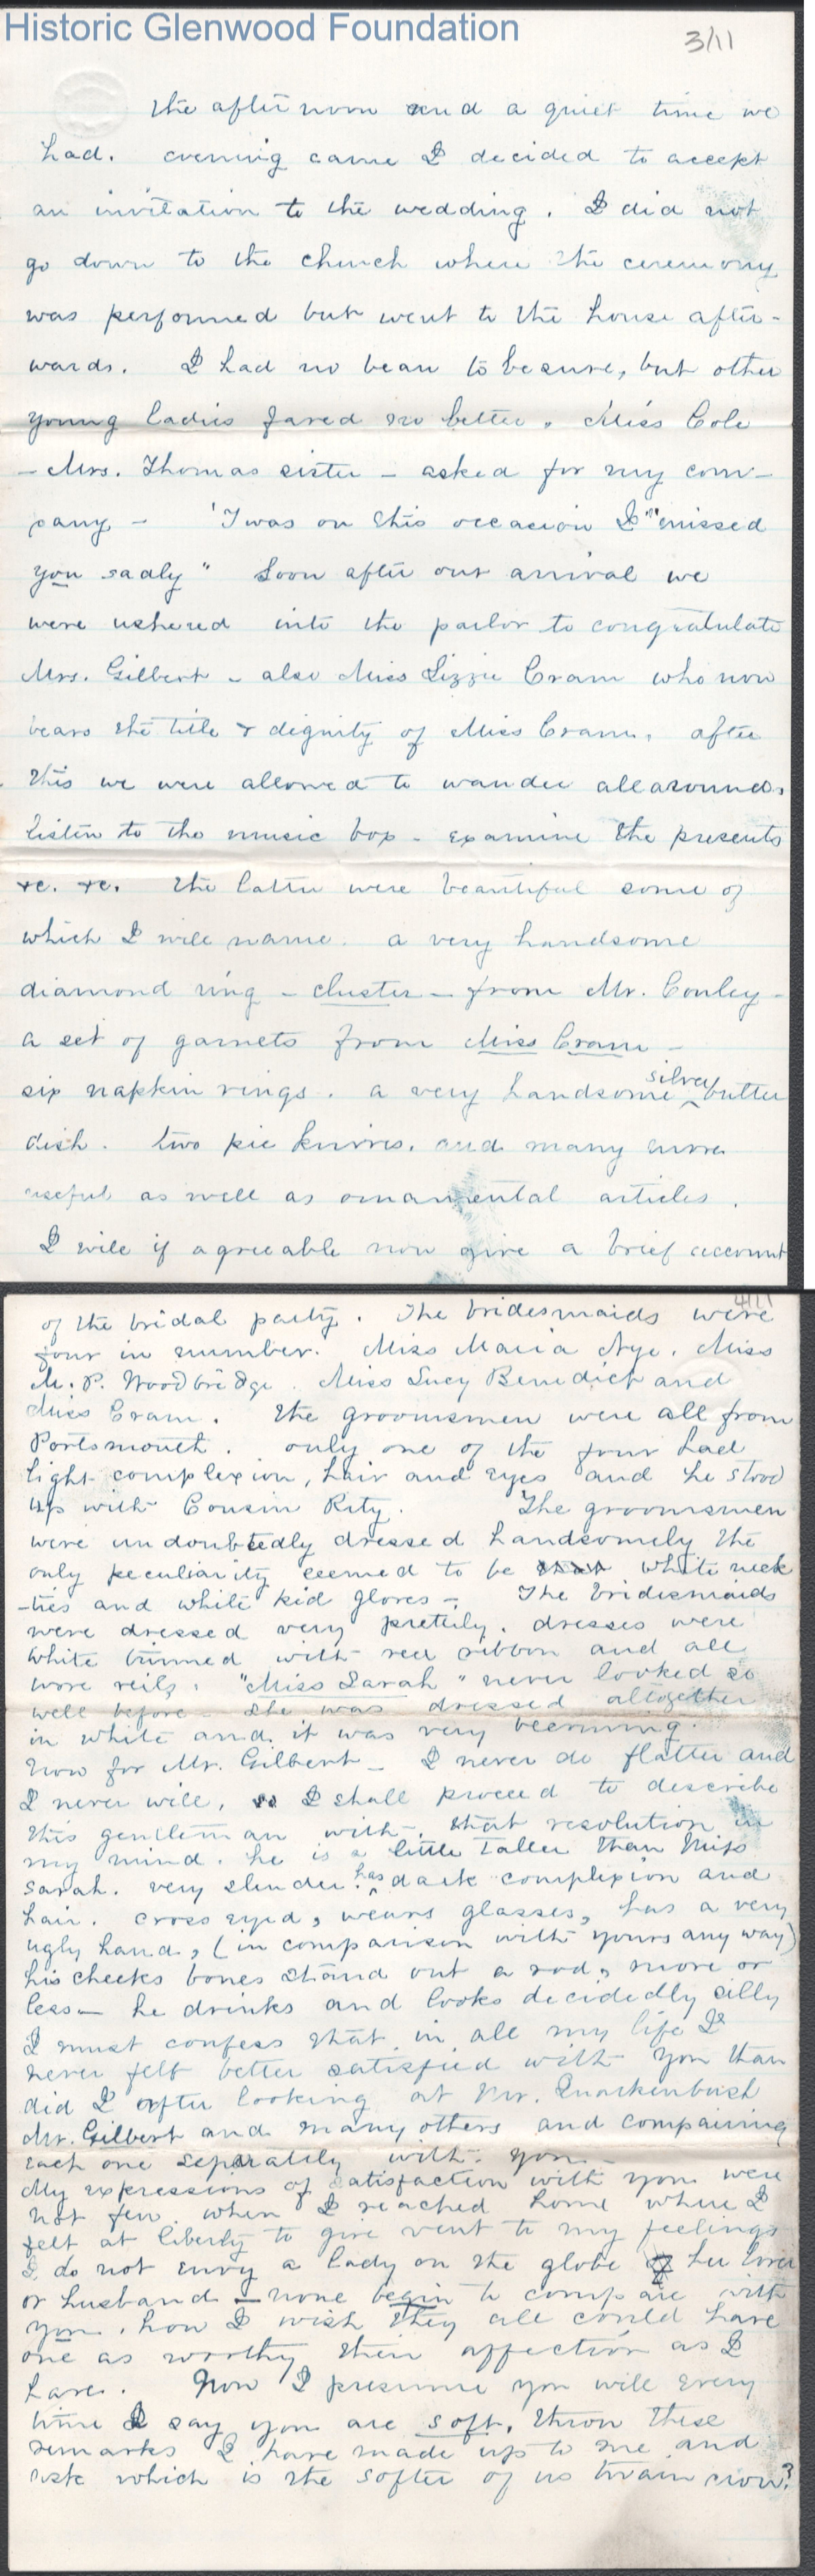 Historic Glenwood Foundation
3/11
the afternoon and a quiet time we
had. evening came I decided to accept
an invitation to the wedding. I did not
go down to the church where the ceremony
was performed but went to the house after-
wards. I had no beau to be sure, but other
young ladies fared no better. Miss Cole
- Mrs. Thomas sister - asked for my com-
pany - 'Twas on this occasion I "missed
you sadly" Soon after our arrival we
were ushered into the parlor to congratulate
Mrs. Gilbert - also Miss Lizzie Cram who now
bears the title & dignity of Miss Cram. after
this we were allowed to wander all around.
listen to the music box - examine the presents
&c. &c. the latter were beautiful some of
which I will name. a very handsome
diamond ring - cluster - from Mr. Conley -
a set of garnets from Miss Cram -
six napkin rings. a very handsome silver butter
dish. two pie knives. and many more
useful as well as ornamental articles.
I will if agreeable now give a brief account
4/11
of the bridal party. The bridesmaids were
four in number. Miss Maria Nye. Miss
M. P. Woodbridge. Miss Lucy Benedict and
Miss Cram. the groomsmen were all from
Portsmouth. only one of the four had
light complexion, hair and eyes and he stood
up with Cousin Rity. The groomsmen
were undoubtedly dressed handsomely the
only peculiarity seemed to be white neck
-ties and white kid gloves -. The bridesmaids
were dressed very prettily. dresses were
white trimmed with red ribbon and all
wore veils. "Miss Sarah" never looked so
well before - she was dressed altogether
in white and it was very becoming.
Now for Mr. Gilbert - I never do flatter and
I never will, so I shall proceed to describe
this gentleman with that resolution in
my mind. he is a little taller than Miss
Sarah. very slender. has dark complexion and
hair. cross eyed, wears glasses, has a very
ugly hand, (in comparison with yours any way)
his cheeks bones stand out a rod, more or
less - he drinks and looks decidedly silly
I must confess that in all my life I
never felt better satisfied with you than
did I after looking at Mr. Quackenbush
Mr. Gilbert and many others and comparing
each one separately with you -
My expressions of satisfaction with you were
not few when I reached home where I
felt at liberty to give vent to my feelings
I do not envy a lady on the globe her lover
or husband - none begin to compare with
you. how I wish they all could have
one as worthy their affection as I
have. Now I presume you will every
time I say you are soft, throw these
remarks I have made up to me and
ask which is the softer of us twain now?